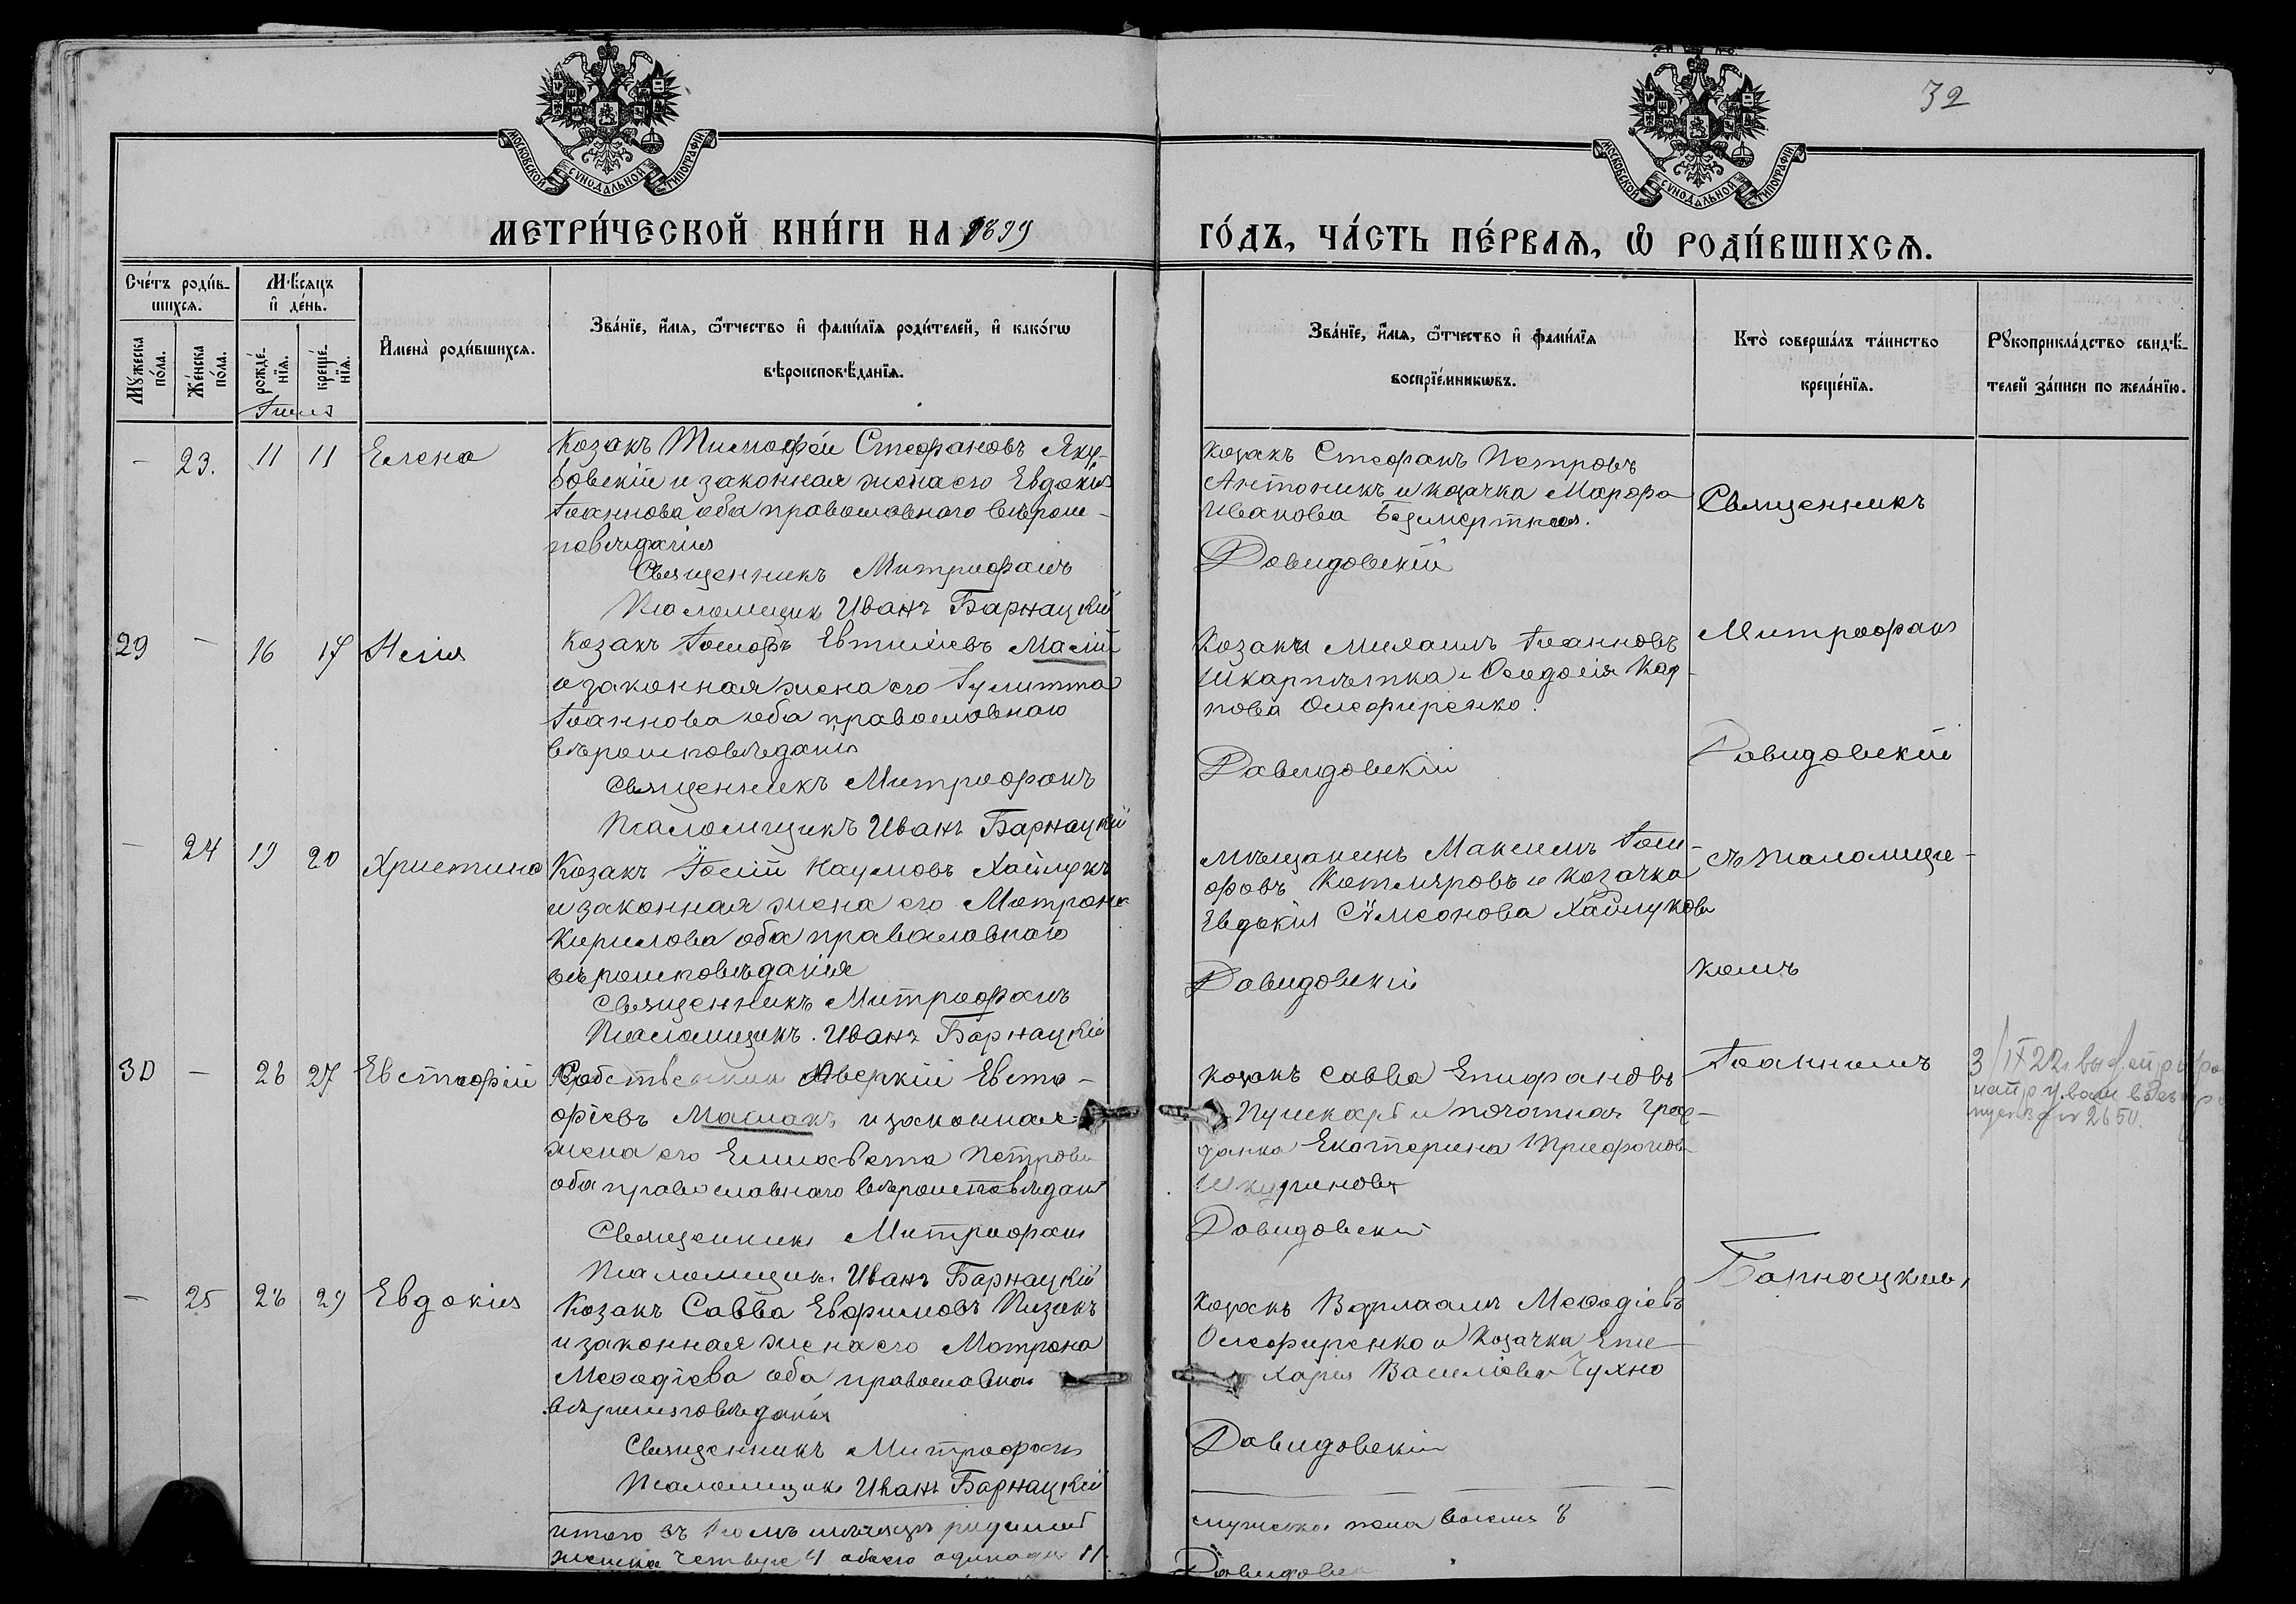 32
МОСКОВСКОЙ СѴНОДАЛЬНОЙ ТИПОГРАФІИ
МОСКОВСКОЙ СѴНОДАЛЬНОЙ ТИПОГРАФІИ
МЕТРИ́ЧЕСКОЙ КНИ́ГИ НА 1899
ГО́ДЪ, ЧА́СТЬ ПЕ́РВАЯ, Ѡ РОДИ́ВШИХСЯ.
Сче́тъ роди́в-
шихся.
Му́жеска по́ла.
Же́нска по́ла.
Мѣ́сяцъ
и҆ де́нь.
рожде́-
нїя.
креще́-
нїя.
И҆мена̀ роди́вшихся.
Зва́нїе, и҆́мя, ѻ҆́тчество и҆ фами́лїя роди́телей, и҆ како́гѡ
вѣроисповѣ́данїя.
Зва́нїе, и҆́мя, ѻ҆́тчество и҆ фами́лїя
воспрїе́мникѡвъ.
Кто̀ соверша́лъ та́инство
креще́нїя.
Рꙋкоприкла́дство свидѣ́-
телей за́писи по жела́нїю.
- 23. 11 11 Елена
Козакъ Тимофей Стефановъ Яку-
бовскій и законная жена его Евдокія
Іоаннова оба православного вѣроис-
повѣданія
Священникъ Митрофанъ
Псаломщик Иванъ Барнацкій
Козакъ Стефанъ Петровъ
Антоникъ и козачка Марфа
Иванова Безмертная.
Довидовскій
Священникъ
29 - 16 17
Козакъ Іосифъ Евтиміевъ Масій
и законная жена его Іулитта
Іоаннова оба православного
вѣроисповѣданія
Священникъ Митрофанъ
Псаломщикъ Иванъ Барнацкій
Козакъ Михаилъ Іоанновъ
Шкарпѣтка и Ѳеодосія Кар-
пова Олефиренко.
Давидовскій
Митрофан
Давидовскій
- 24 19 20 Христина
Козакъ Іосій Наумовъ Хайлукъ
и законная жена его Матрона
Кирилова оба православного
вѣроисповѣданія
Священникъ Митрофанъ
Псаломщикъ. Иванъ Барнацкій
мѣщанинъ Максимъ Іоси-
фовъ Котляровъ и козачка
Евдокія Сѵмеонова Хайлукова
Давидовскій
съ псаломщи-
комъ
30 - 26 27 Евстафій
Аверкій Евста-
фіевъ Масмакъ и законная
жена его Елисавета Петрова
оба православного вѣроисповѣданія
Священникъ Митрофанъ
Псаломщик. Иванъ Барнацкій
козакъ Савва Епифановъ
Пушкарь и почотная граж-
данка Екатерина Трифонова
Довидовскій
Іоанномъ
Барнацкимъ,
3/IX 22 г.
№ 2650.
- 25 28 29 Евдокия
Козакъ Савва Евфимовъ Пизакъ
и законная жена его Матрона
Меѳодіева оба православнаго
вѣроисповѣданія
Священникъ Митрофанъ
Псаломщикъ Иванъ Барнацкій
Козакъ Варлаамъ Меѳодіевъ
Олефиренко и Козачка Ели-
Васильева Чухно
Довидовскій
итого въ Іюлѣ мѣсяцѣ родилось
мужеска пола восемь 8
женска четыре 4 обоего одинадцать 11.
Давидовск